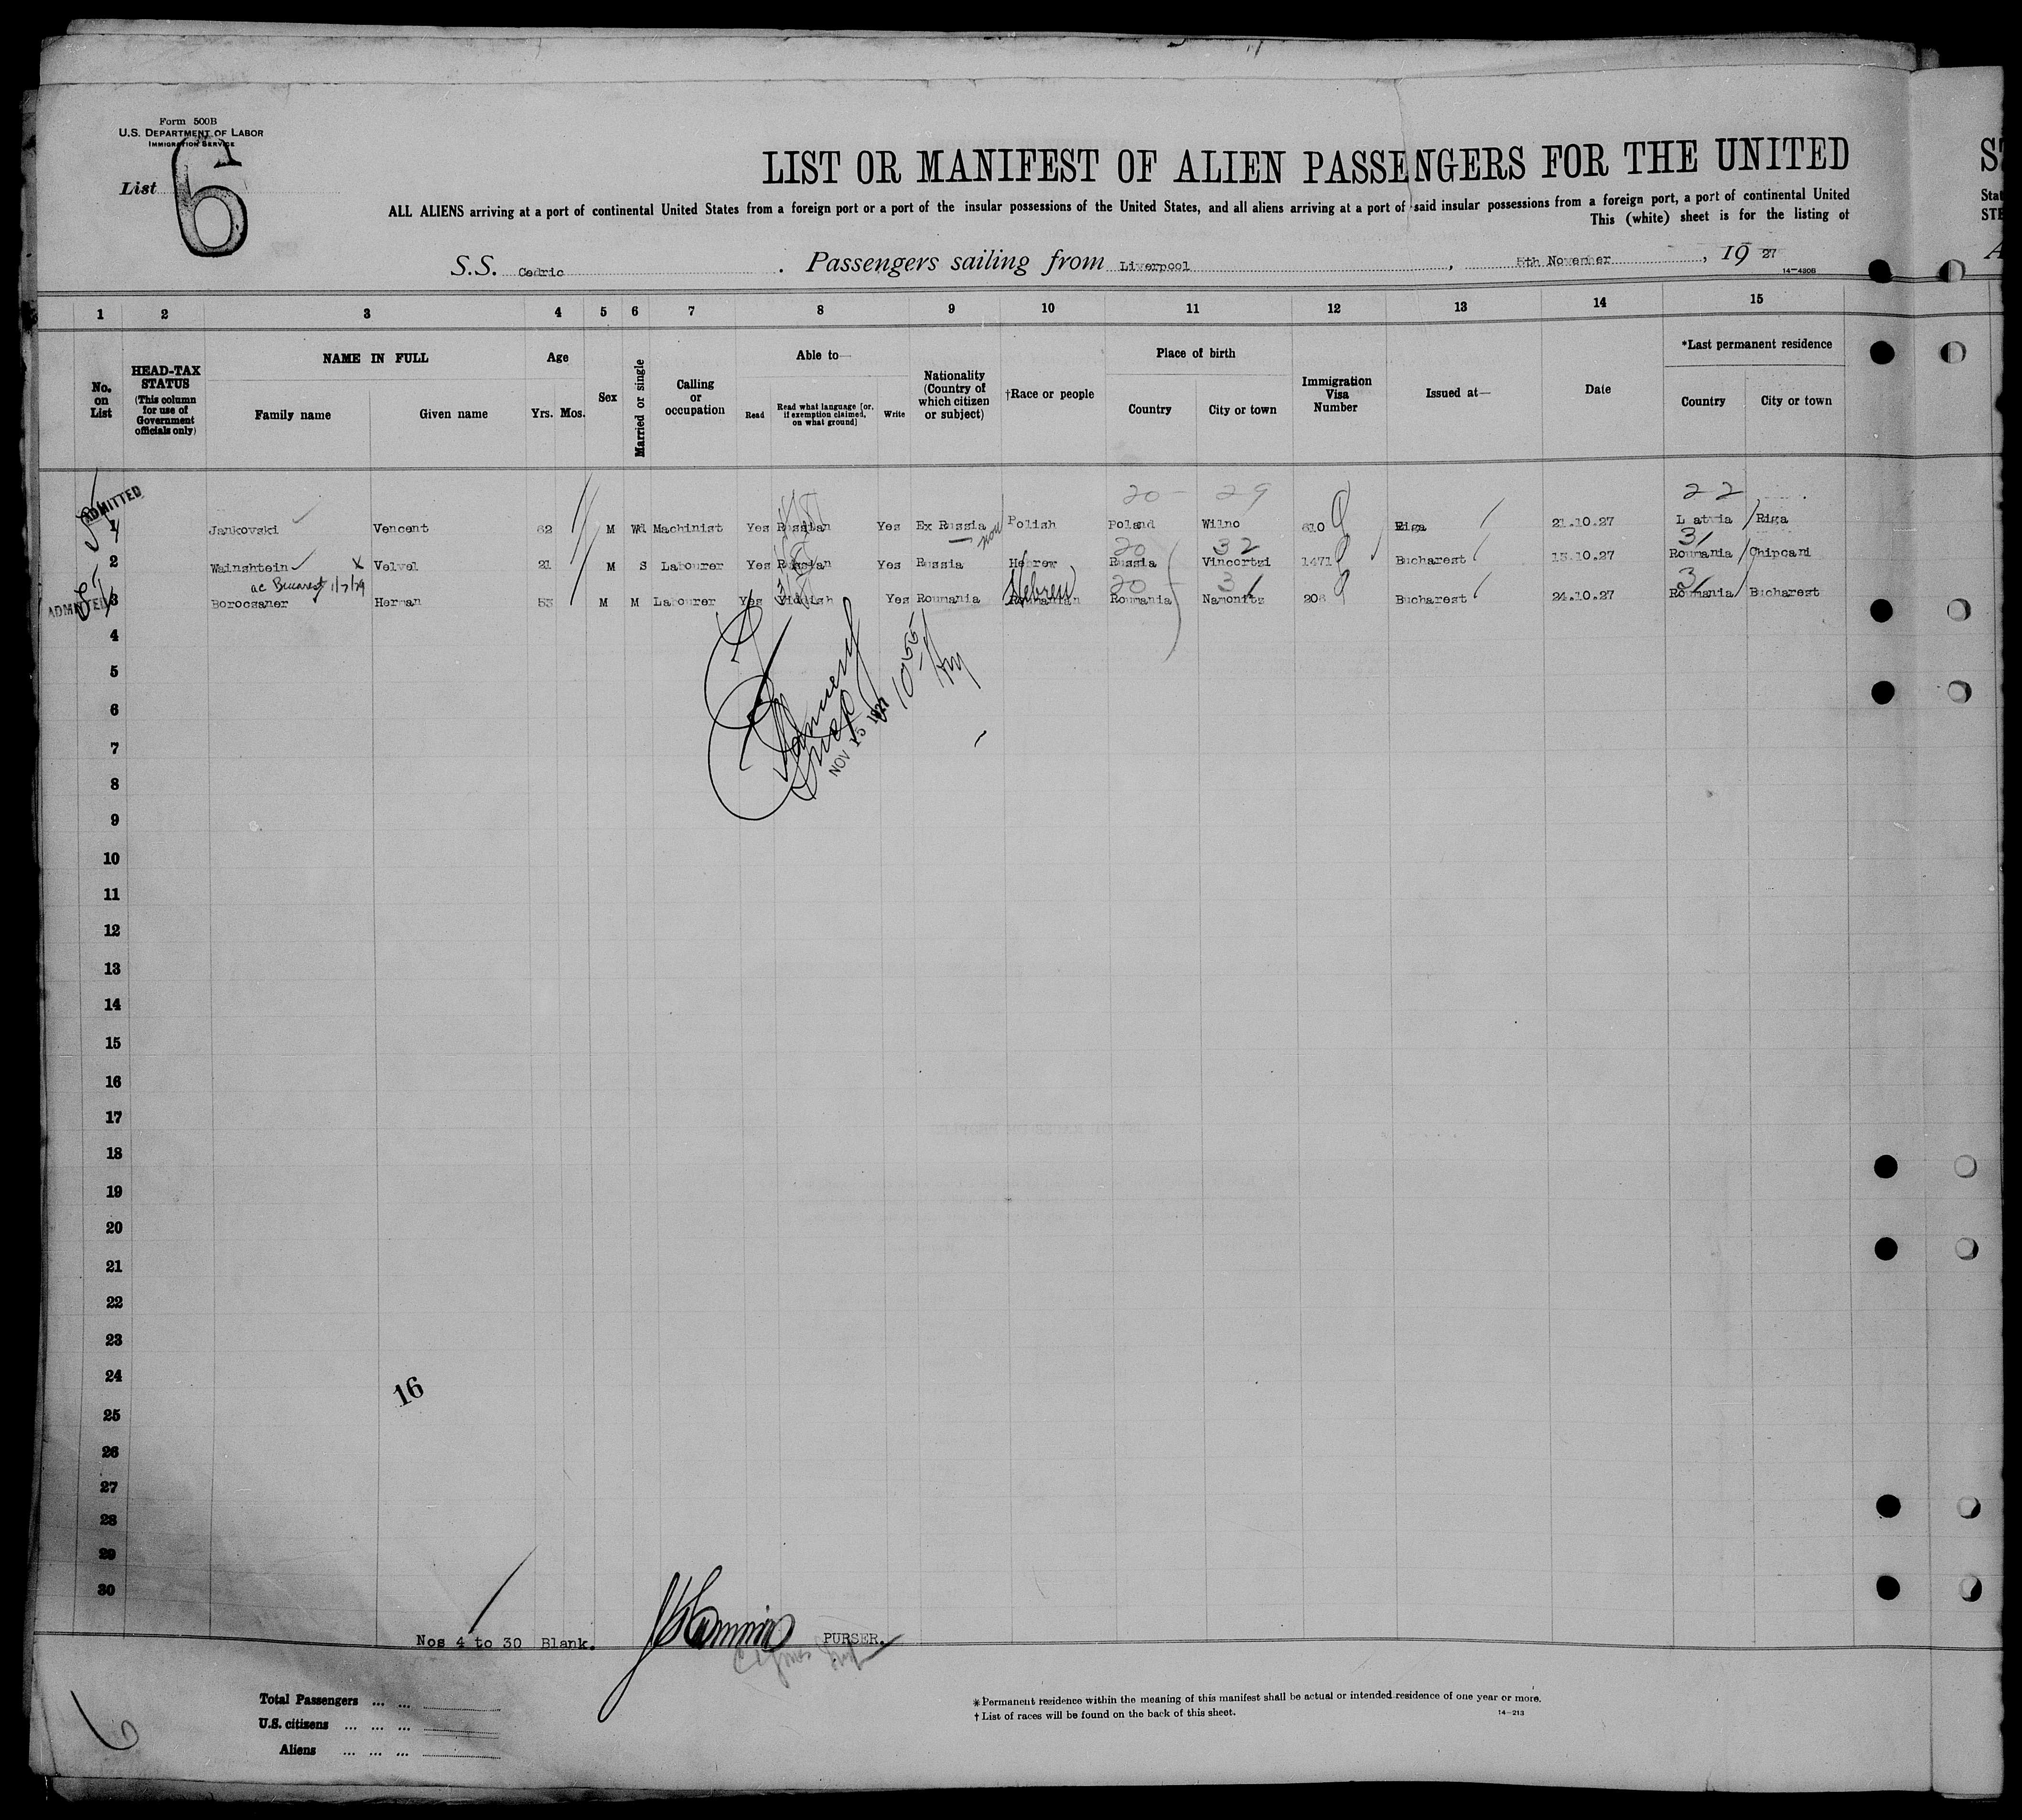 Form 500B
U.S. DEPARTMENT OF LABOR
IMMIGRATION SERVICE
List 6
LIST OR MANIFEST OF ALIEN PASSENGERS FOR THE UNITED
ALL ALIENS arriving at a port of continental United States from a foreign port or a port of the insular possessions of the United States, and all aliens arriving at a port of said insular possessions from a foreign port, a port of continental United
This (white) sheet is for the listing of
S.S. Cedric . Passengers sailing from Liverpool , 5th November , 19 27
14—430B
1 2 3 4 5 6 7 8 9 10 11 12 13 14 15
No. on List
HEAD-TAX STATUS (This column for use of Government officials only)
NAME IN FULL
Family name Given name
Age
Yrs. Mos.
Sex
Married or single
Calling or occupation
Able to—
Read Read what language [or, if exemption claimed, on what ground] Write
Nationality (Country of which citizen or subject)
†Race or people
Place of birth
Country City or town
Immigration Visa Number
Issued at—
Date
*Last permanent residence
Country City or town
20 - 29 22
ADMITTED
1 Jankovski Vencent 62 M Wd Machinist Yes Russian Yes Ex Russia Polish Poland Wilno 610 Riga 21.10.27 Latvia Riga
20 32 31
2 Wainshtein X Velvel 21 M S Labourer Yes Russian Yes Russia Hebrew Russia Vincortzi 1471 Bucharest 13.10.27 Roumania Chipcani
ac Bucarest 1/7/29
Hebrew 20 - 31 31
ADMITTED
3 Borocsaner Herman 53 M M Labourer Yes Yiddish Yes Roumania Roumanian Roumania Namonitz 208 Bucharest 24.10.27 Roumania Bucharest
4
5
6
NOV 15 1927
7
8
9
10
11
12
13
14
15
16
17
18
19
20
21
22
23
24
16
25
26
27
28
29
30
Nos 4 to 30 Blank. PURSER.
6
Total Passengers ... ...
U.S. citizens ... ... ...
Aliens ... ... ...
* Permanent residence within the meaning of this manifest shall be actual or intended residence of one year or more.
† List of races will be found on the back of this sheet.
14—213